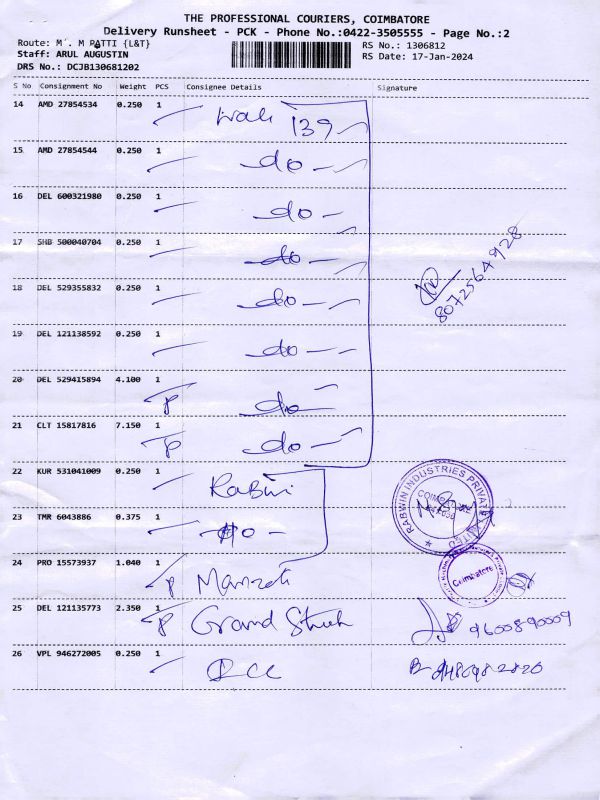 THE PROFESSIONAL COURIERS, COIMBATORE
Delivery Runsheet - PCK - Phone No.:0422-3505555 - Page No.:2
Route: M . M PATTI {L&T}
Staff: ARUL AUGUSTIN
DRS No.: DCJB130681202
RS No.: 1306812
RS Date: 17-Jan-2024
S No Consignment No Weight PCS Consignee Details Signature
14 AMD 27854534 0.250 1 139
15 AMD 27854544 0.250 1 do
16 DEL 600321980 0.250 1 do
17 SHB 500040704 0.250 1 do
18 DEL 529355832 0.250 1 do
8072564928
19 DEL 121138592 0.250 1 do
20 DEL 529415894 4.100 1 P do
21 CLT 15817816 7.150 1 P do
22 KUR 531041009 0.250 1 Rabwin
RABWIN INDUSTRIES PRIVATE LIMITED
COIMBATORE
23 TMR 6043886 0.375 1 do
24 PRO 15573937 1.040 1 P
Coimbatore
25 DEL 121135773 2.350 1 P Grand 9600890009
26 VPL 946272005 0.250 1